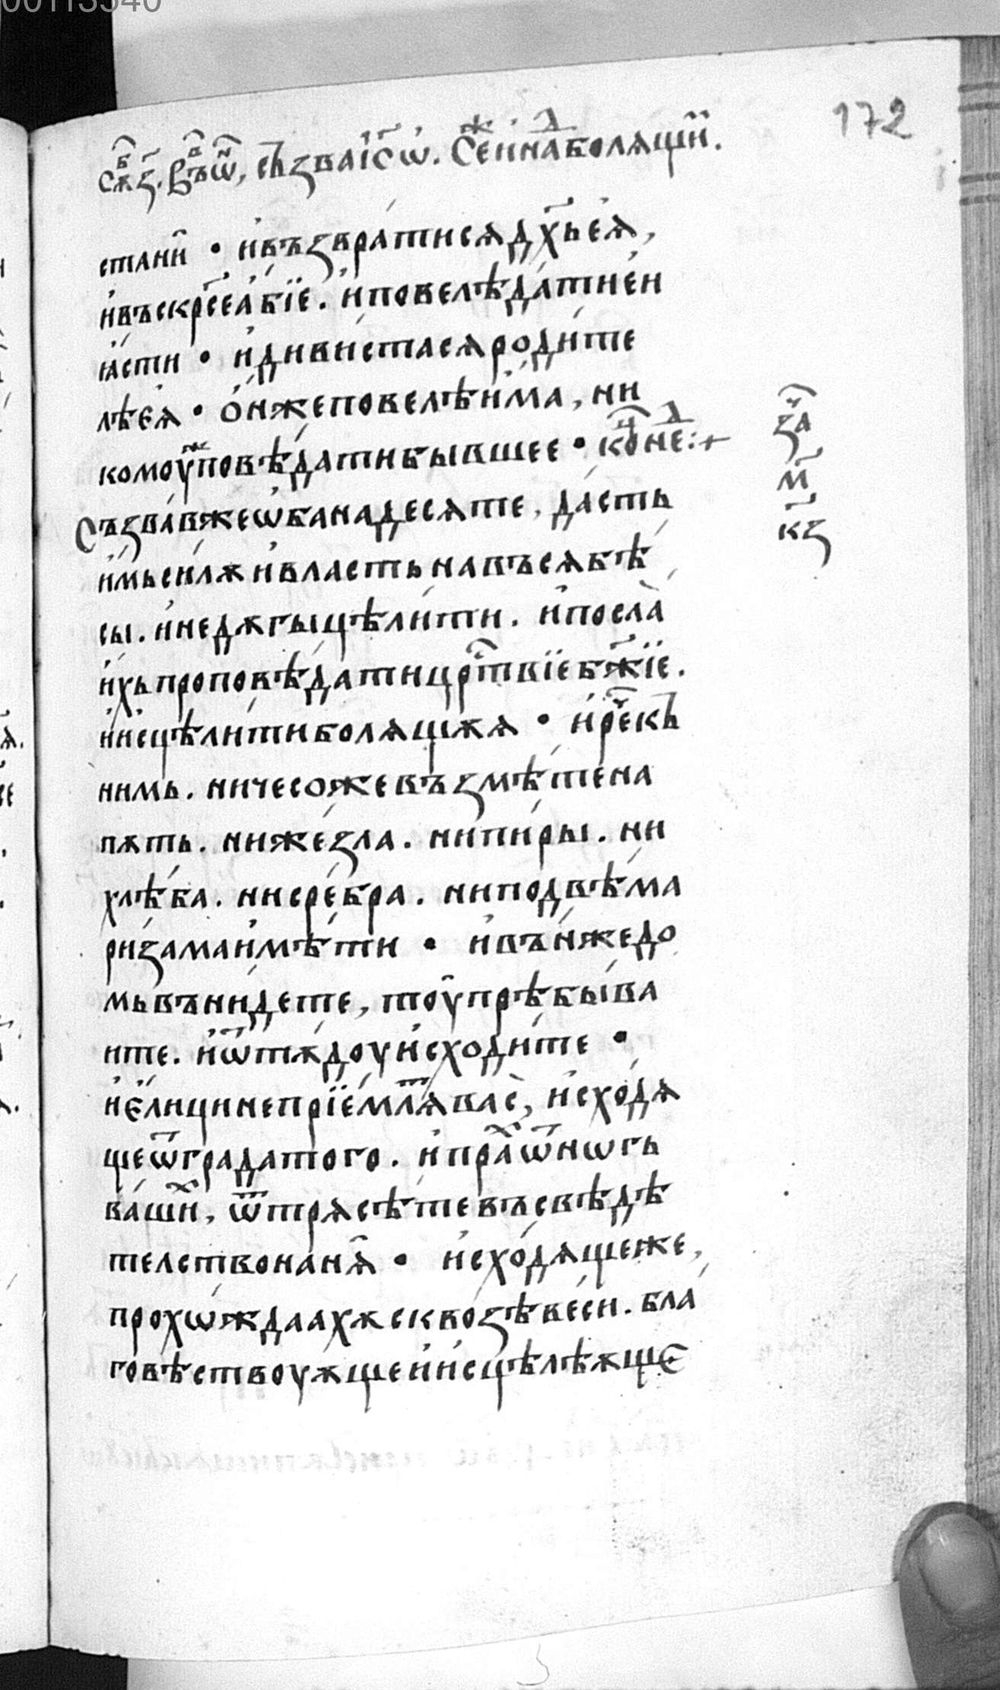 00113540
172
сѫⷠ҇ з҃. въⷡ҇ ѡⷩ҇, съзва і҃с ѡ. Сеⷤ и на боⷧ҇лящиⷯ.
стани • и҆възвратися дх҃ь еѧ̀,
и҆въскр҃се а҆бїе. и҆повелѣ да́ти еи
ꙗ҆сти • и҆диви́стася роди́те
лѣ еѧ̀ • о҆нже повелѣ и҆́ма, ни
комоуⷤ повѣ́дати бывшее • коне⁘+
за҃
м҃
кз
Съзва́вже ѡ҆банадесяте, да́сть
и҆мь си́лѫ и҆власть на въся бѣ
сы. и҆недѫгы цѣли́ти. и҆посла̀
и҆хь проповѣ́дати црⷭ҇твїе бж҃їе.
и҆исцѣли́ти боля́щѫѧ • и҆реⷱ҇ къ
нимь. ничесоже възмѣ́те на
пѫть. ни жезла. ни пи́ры. ни
хлѣ́ба. ни сре́бра. ни по двѣ́ма
ри́зама и҆мѣ́ти • и҆въ ню́же до
мь въни́дете, тоу̀ прѣбы́ва
ите. и҆ѿтѫ́доу и҆сходи́те •
и҆е҆ли́ци не прїе́млѧⷮ ва́с, и҆сходя́
ще ѿ града того. и҆праⷯ ѿ но́гь
ва́шиⷯ, ѿтрясѣ́те въ свѣдѣ́
телство на ня̀ • и҆сходя́ще же,
прохѡждаахѫ сквозѣ ве́си. бла
говѣствоуѫще и҆исцѣлѣѫще